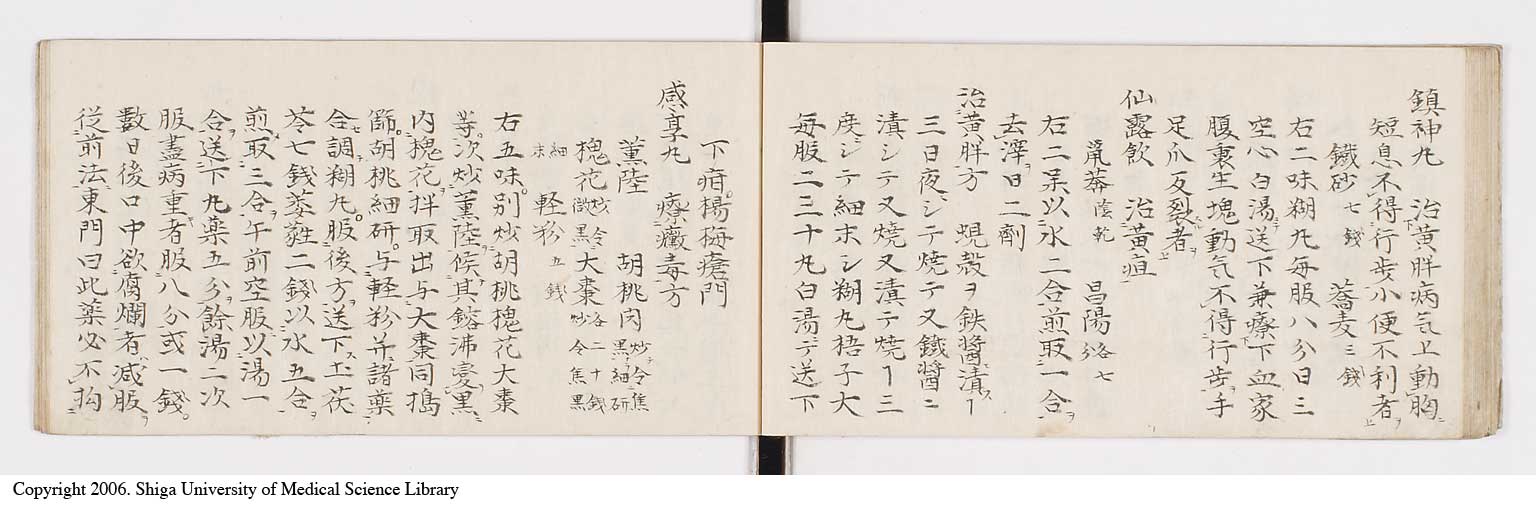 鎮神丸　治黄胖病気上動胸
短息不得行歩小便不利者
鐵砂七錢　蕎麦三錢
右二味糊丸毎服八分日三
空心白湯送下兼療下血家
腹裏生塊動気不得行歩手
足爪反裂者
仙露飲　治黄疸
菎蓦陰乾　昌陽各七分
右二味以水二合煎取一合
去滓日二劑
治黄胖方　蜆殻ヲ鉄醤漬ス丁
三日夜ニシテ焼テ又鐵醤ニ
漬シテ又焼又漬テ焼丁三
度ニシテ細末シ糊丸梧子大
毎服二三十丸白湯ニテ送下
下疳楊梅瘡門
感享丸　療黴毒方
薫陸　胡桃肉炒テ令焦黒ナラ細研
槐花炒令微黒　大棗各二十錢炒令焦黒
細末　軽粉五錢
右五味別炒胡桃槐花大棗
等次炒薫陸候其鎔沸変黒
内槐花拌取出与大棗同搗
篩胡桃細研与軽粉并諸薬
合調糊丸服後方送下土茯
苓七錢萎蕤二錢以水五合
煎取三合午前空服以湯一
合送下丸薬五分餘湯二次
服盡病重者服八分或一錢
數日後口中欲腐爛者減服
従前法東門曰此薬必不拘
Copyright 2006. Shiga University of Medical Science Library